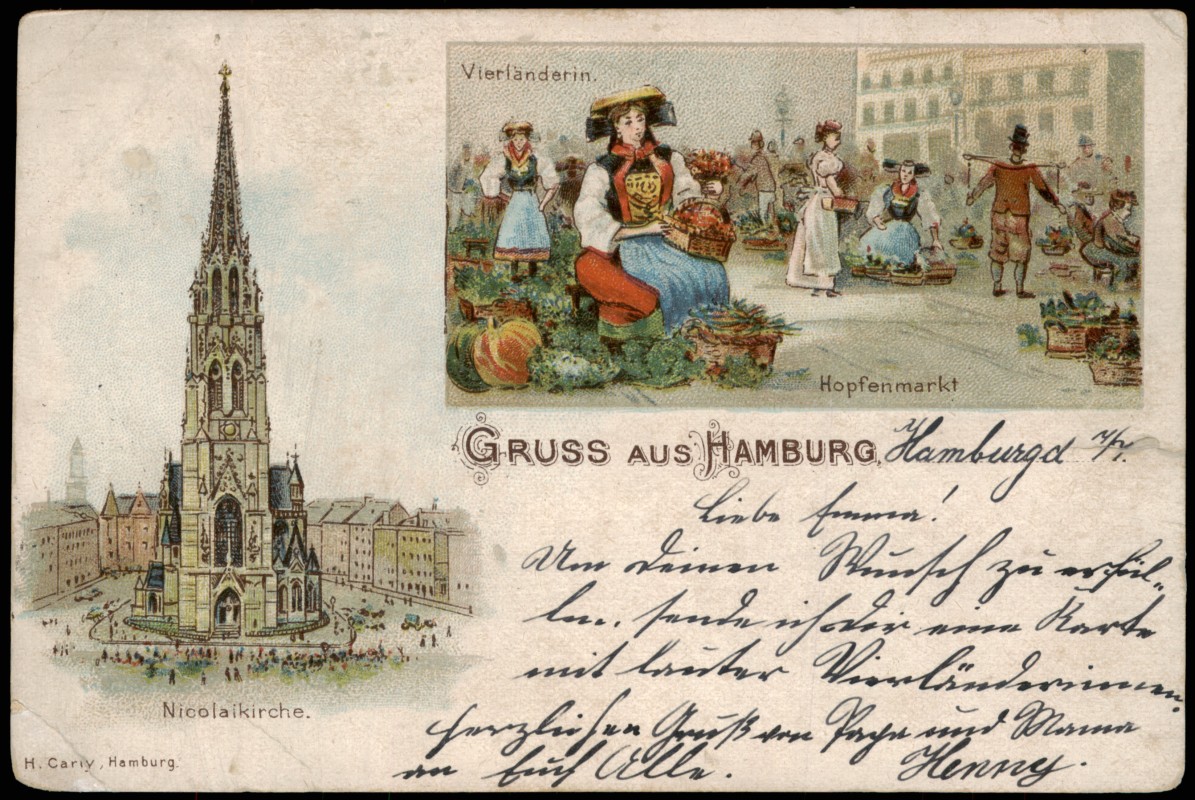 Vierländerin.
Hopfenmarkt
GRUSS AUS HAMBURG,
Hamburg d
Liebe Emma!
Um deinen Wunsch zu erfül-
len, sende ich dir eine Karte
mit lauter Vierländerinnen.
Herzlichen Gruß von Papa und Mama
an Euch Alle. Henny.
Nicolaikirche.
H. Carly, Hamburg.